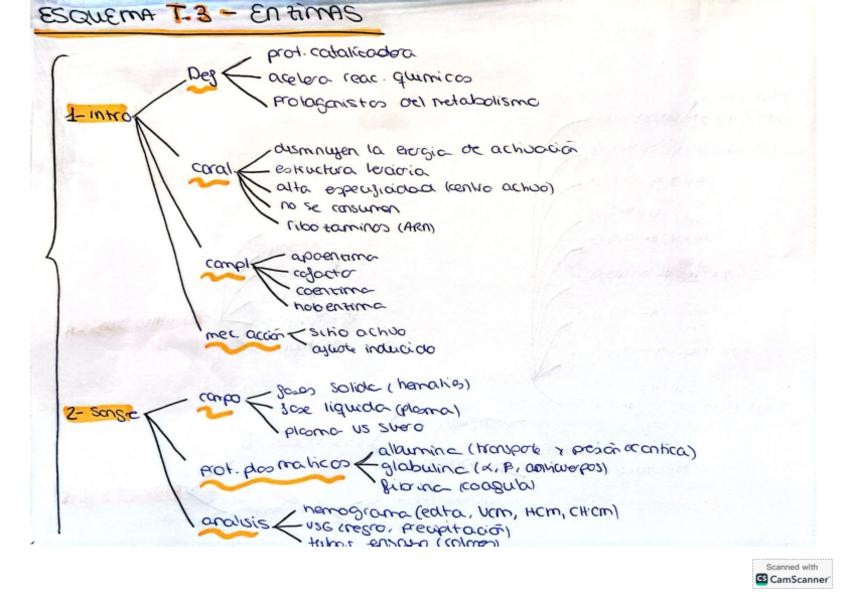 ESQUEMA T.3 - ENZIMAS
1- intro
Def
prot. catalizadora
acelera reac. quimicas
protagonistas del metabolismo
caract.
disminuyen la energia de activación
estructura terciaria
alta especificidad (centro activo)
no se consumen
ribo (ARN)
compl
apoenzima
cofactor
coenzima
holoenzima
mec. acción
sitio activo
ajuste inducido
2- sangre
compo
fases solida (hematies)
fase liquida (plasma)
plasma vs suero
prot. plasmaticas
albumina (transporte y presión)
globulina (α, β, anticuerpos)
fibrina (coagula)
analisis
hemograma (edta, VCM, HCM, CHCM)
VSG (negro, precipitación)
tubos
Scanned with
CS CamScanner